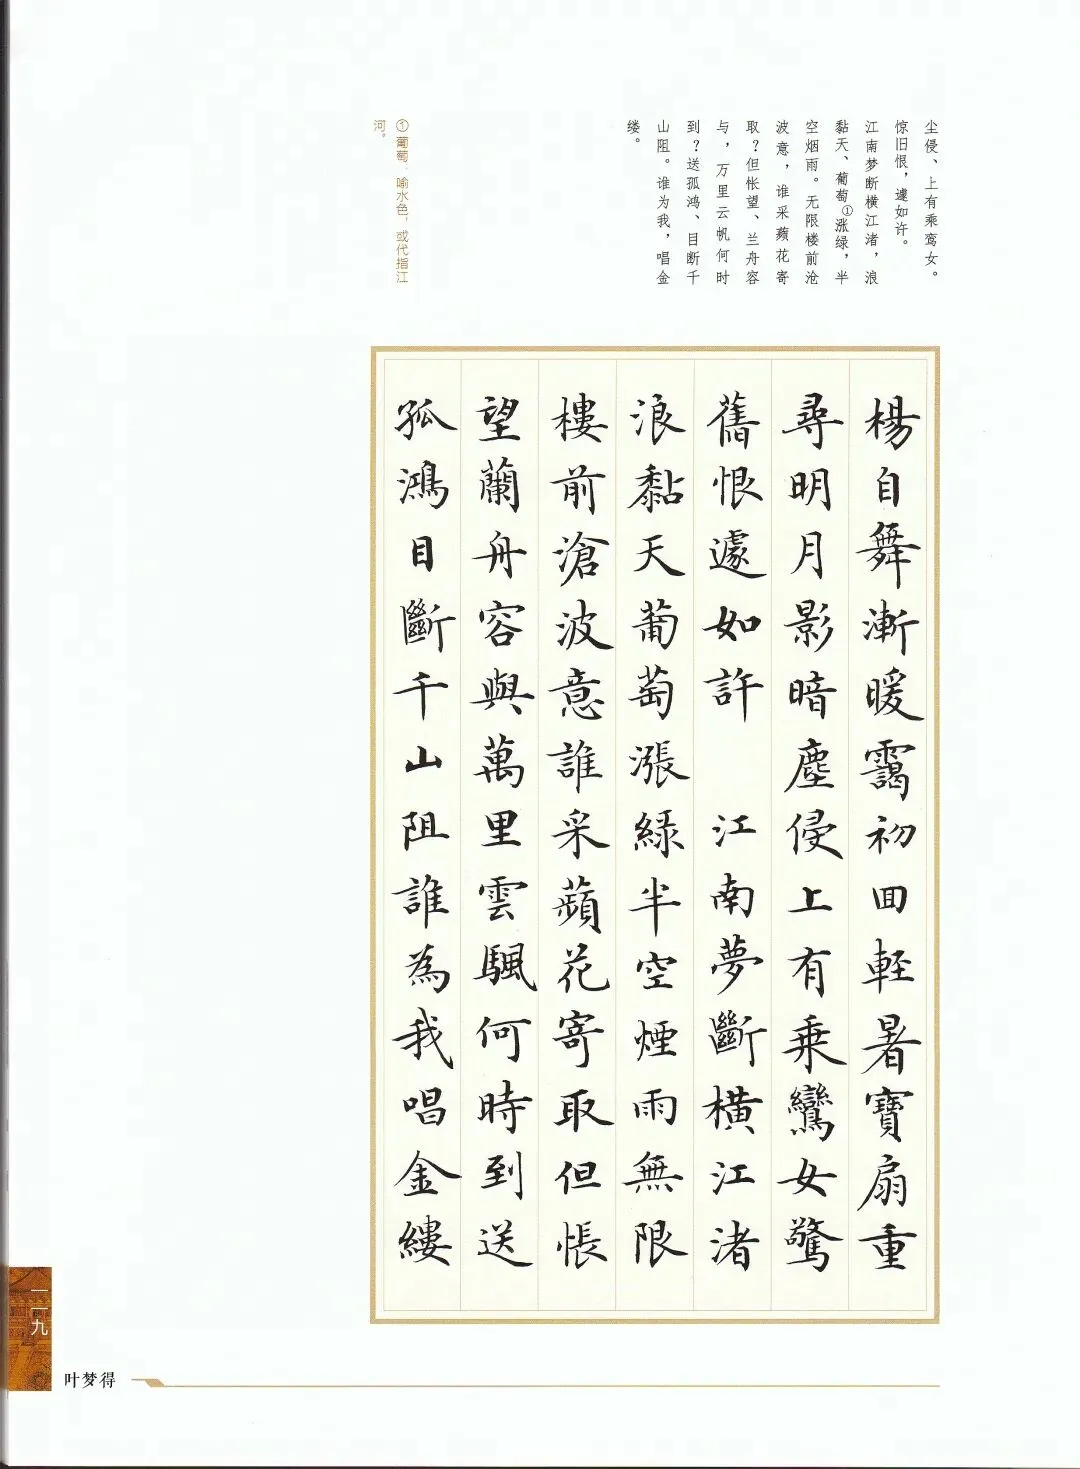 尘侵、上有乘鸾女。
惊旧恨，遽如许。
江南梦断横江渚，浪
黏天、葡萄①涨绿，半
空烟雨。无限楼前沧
波意，谁采蘋花寄
取？但怅望、兰舟容
与，万里云帆何时
到？送孤鸿、目断千
山阻。谁为我，唱金
缕。
①葡萄：喻水色，或代指江
河。
楊自舞漸暖靄初回輕暑寶扇重
尋明月影暗塵侵上有乘鸞女驚
舊恨遽如許 江南夢斷橫江渚
浪黏天葡萄漲綠半空煙雨無限
樓前滄波意誰采蘋花寄取但悵
望蘭舟容與萬里雲颿何時到送
孤鴻目斷千山阻誰為我唱金縷
一一九
叶梦得